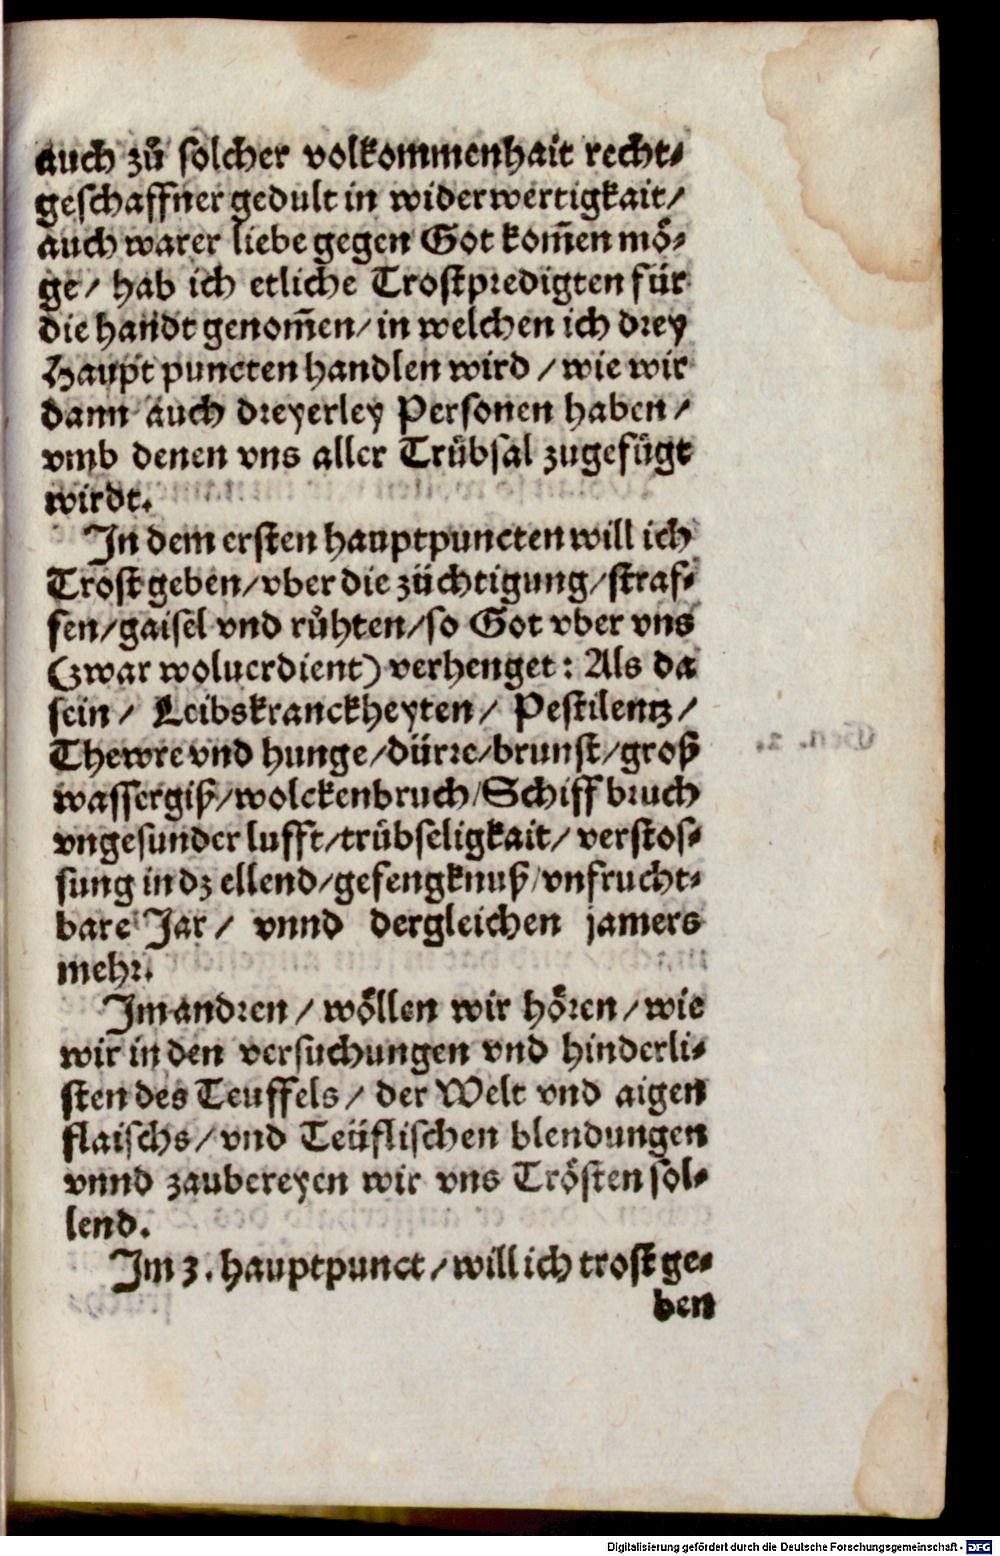 auch zů solcher volkommenhait recht⸗
geschaffner gedult in widerwertigkait/
auch warer liebe gegen Got kom̃en mö⸗
ge/ hab ich etliche Trostpredigten für
die handt genom̃en/ in welchen ich drey
Haupt puncten handlen wird / wie wir
dann auch dreyerley Personen haben /
vmb denen vns aller Trübsal zugefügt
wirdt.
In dem ersten hauptpuncten will ich
Trost geben/ vber die züchtigung/ straf⸗
fen/ gaisel vnd růhten/ so Got vber vns
(zwar woluerdient) verhenget: Als da
sein / Leibskranckheyten / Pestilentz /
Thewre vnd hunge/ dürre/ brunst/ groß
wassergiß/ wolckenbruch/ Schiffbruch
vngesunder lufft/ trübseligkait/ verstos⸗
sung in dz ellend/ gefengknuß/ vnfrucht⸗
bare Jar / vnnd dergleichen jamers
mehr.
Im andren / wöllen wir hören / wie
wir in den versuchungen vnd hinderli⸗
sten des Teuffels / der Welt vnd aigen
flaischs / vnd Teüflischen blendungen
vnnd zaubereyen wir vns Trösten sol⸗
lend.
Im 3. hauptpunct / will ich trost ge⸗
ben
Digitalisierung gefördert durch die Deutsche Forschungsgemeinschaft - DFG